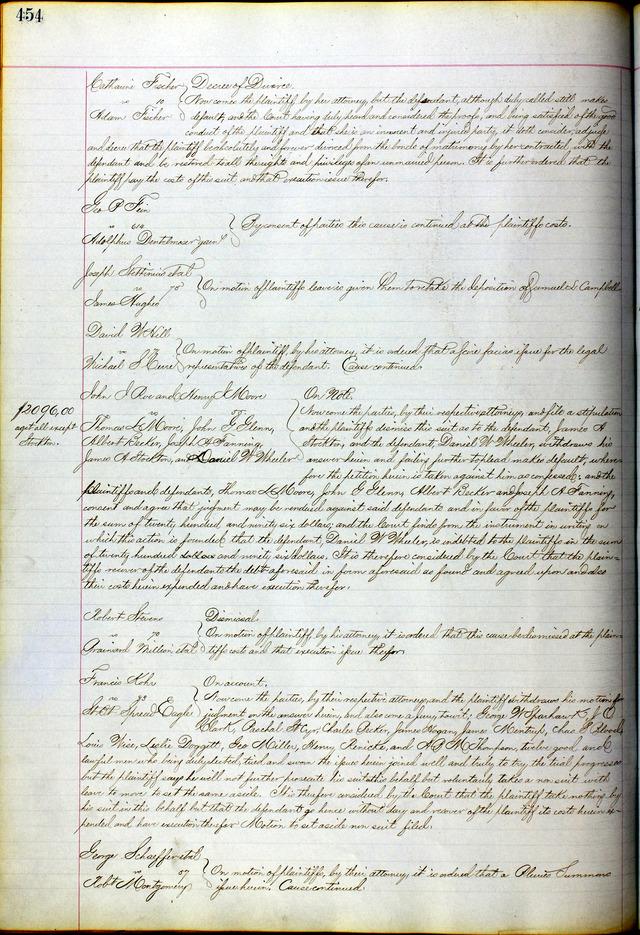 454
Catharine Fischer } Decree of Divorce.
vs 10 Now comes the plaintiff by her attorney, but the defendant, although duly called still makes
Adam Fischer default, and the Court having duly heard and considered the proofs, and being satisfied of the good
conduct of the plaintiff and that she is an innocent and injured party, it doth consider, adjudge
and decree that the plaintiff be absolutely and forever divorced from the bonds of matrimony by her contracted, with the
defendant and be restored to all the rights and privileges of an unmarried person. It is further ordered that the
plaintiff pay the costs of this suit, and that execution issue therefor.
Geo P Fein
vs 610 } By consent of parties this cause is continued at the plaintiffs costs.
Adolphus Dentelmoser
Joseph Settinius etal
vs 78 } On motion of plaintiffs leave is given them to retake the deposition of Samuel Campbell
James Hughes
David W Hill
vs } On motion of plaintiff, by his attorney, it is ordered that a scire facias issue for the legal
Michael S representatives of the defendant. Cause continued.
John J Roe and Henry J Moore On Note.
$2096,00 vs 7 Now come the parties, by their respective attorneys, and file a stipulation
agst all except Thomas L Moore, John G Glenn, and the plaintiffs dismiss this suit as to the defendant, James A
Stockton. Albert Becker, Joseph A Fanning, Stockton, and the defendant, Daniel W Wheeler, withdraws his
James A Stockton, and Daniel W Wheeler answer herein and failing further to plead makes default, where-
fore the petition herein is taken against him as confessed: and the
plaintiffs and defendants, Thomas L Moore, John G Glenn, Albert Becker and Joseph A Fanning,
consent and agree that judgment may be rendered against said defendants and in favor of the plaintiffs for
the sum of twenty hundred and ninety six dollars; and the Court finds from the instrument in writing on
which this action is founded that the defendant, Daniel W Wheeler, is indebted to the plaintiffs in the sum
of twenty hundred and ninety six dollars. It is therefore considered by the Court that the plain-
tiffs recover of the defendants the debt aforesaid in form aforesaid so found and agreed upon and also
their costs herein expended and have execution therefor.
Robert Stevens Dismissal
vs 70 } On motion of plaintiff, by his attorney, it is ordered that this cause be dismissed at the plain-
etal tiffs cost and that execution issue therefor
Francis Kohr On account.
vs 33 Now come the parties, by their respective attorneys, and the plaintiff withdraws his motion for
St Bt Spread Eagle judgment on the answer herein, and also come a jury, towit; George W Sparhawk, J C
Clark, Paschal St Cyr, Charles Becker, James Hogan, James Chas P
Louis Wise, Leslie Doggitt, Geo Miller, Henry and A W Thompson, twelve good, and
lawful men who being duly elected, tried and sworn the issue herein joined well and truly to try, the trial progresses
but the plaintiff says he will not further prosecute his suit in this behalf but voluntarily takes a non suit with
leave to move to set the same aside. It is therefore considered by the Court that the plaintiff take nothing by
his suit in this behalf but that the defendant go hence without day and recover of the plaintiff its costs herein ex-
pended and have execution therefor. Motion to set aside non suit filed.
George Schaeffer etal
vs 57 } On motion of plaintiffs, by their attorney, it is ordered that a Pluries Summons
Robt Montgomery issue herein. Cause continued